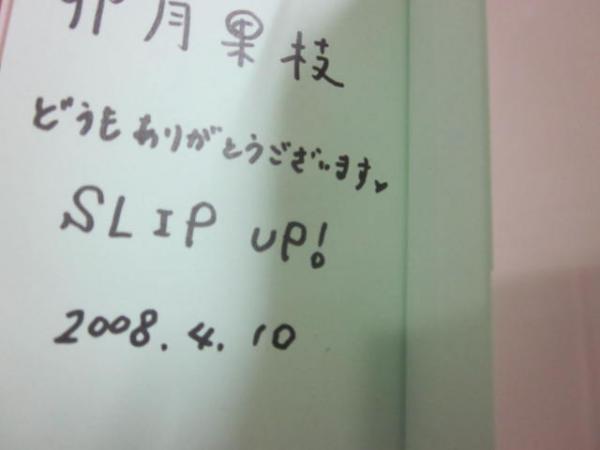 卯月果枝
どうもありがとうございます♥
SLIP UP!
2008.4.10